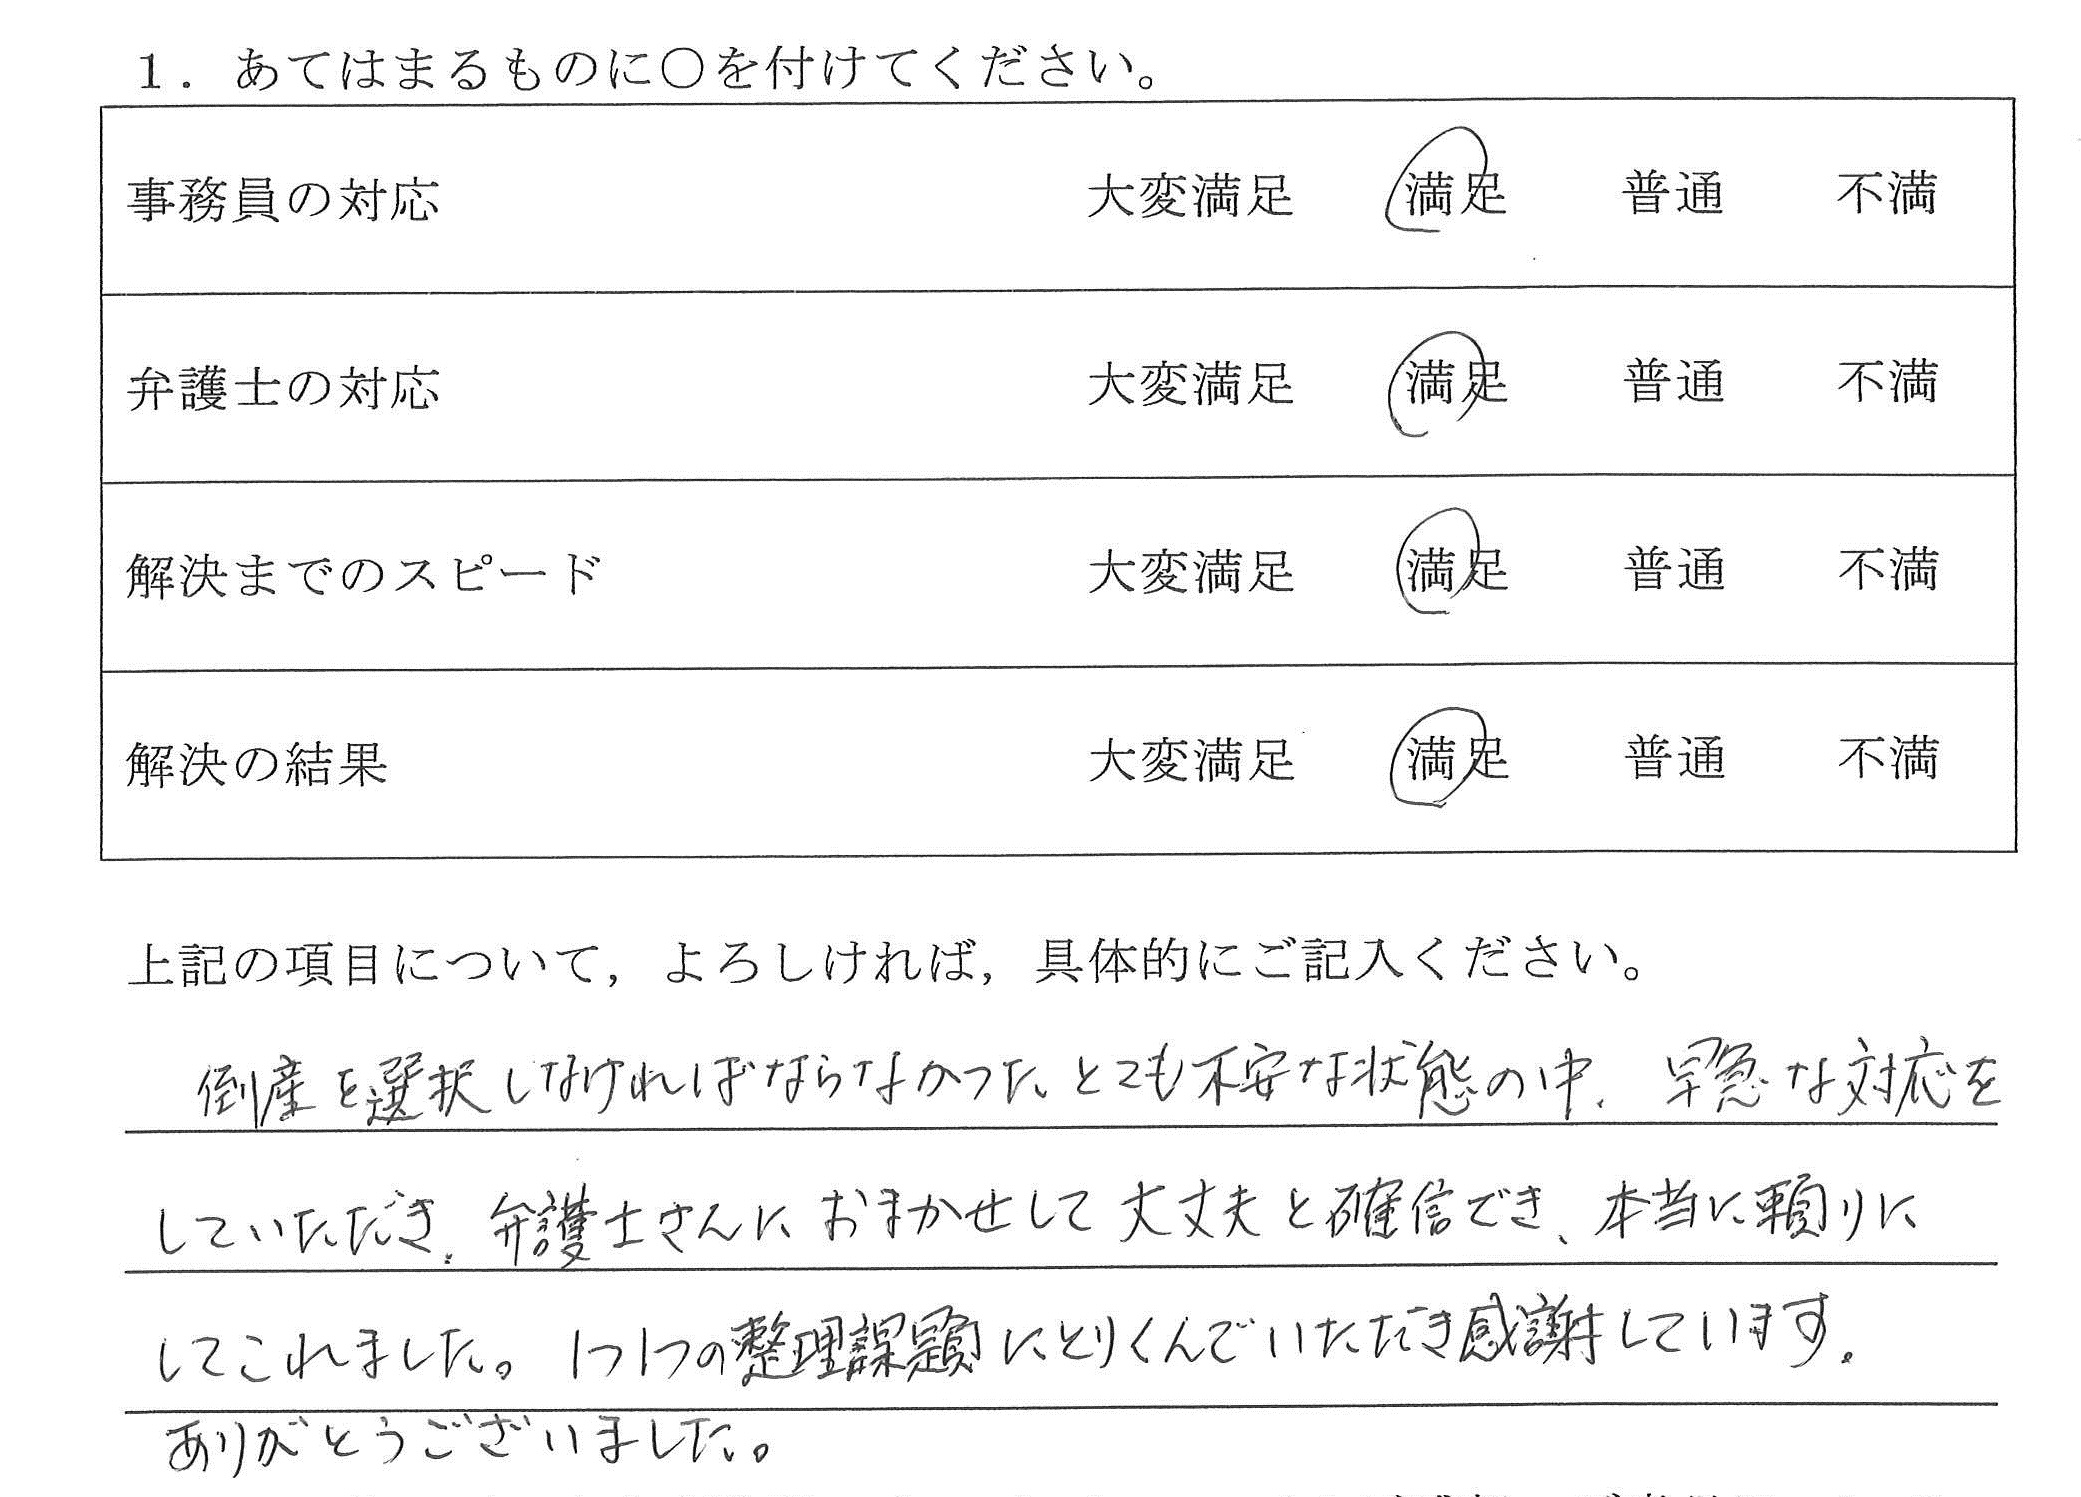 １．あてはまるものに○を付けてください。
事務員の対応 大変満足 満足 普通 不満
弁護士の対応 大変満足 満足 普通 不満
解決までのスピード 大変満足 満足 普通 不満
解決の結果 大変満足 満足 普通 不満
上記の項目について，よろしければ，具体的にご記入ください。
倒産を選択しなければならなかった、とても不安な状態の中、早急な対応を
していただき、弁護士さんにおまかせして大丈夫と確信でき、本当に頼りに
してこれました。1つ1つの整理課題にとりくんでいただき感謝しています。
ありがとうございました。